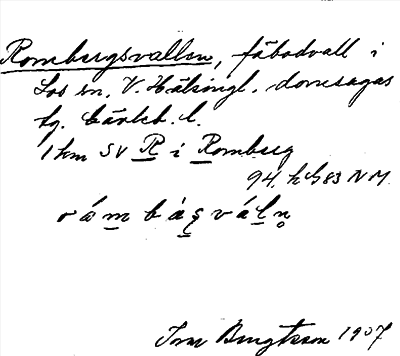 Rombergsvallen, fäbodvall i
Los sn. V. Hälsingl. domsagas
tg. Gävleb. l.
1 km SV R i Romberg
94. h G 83 NM.
råmbäsväln
Ivar Bengtsson 1907